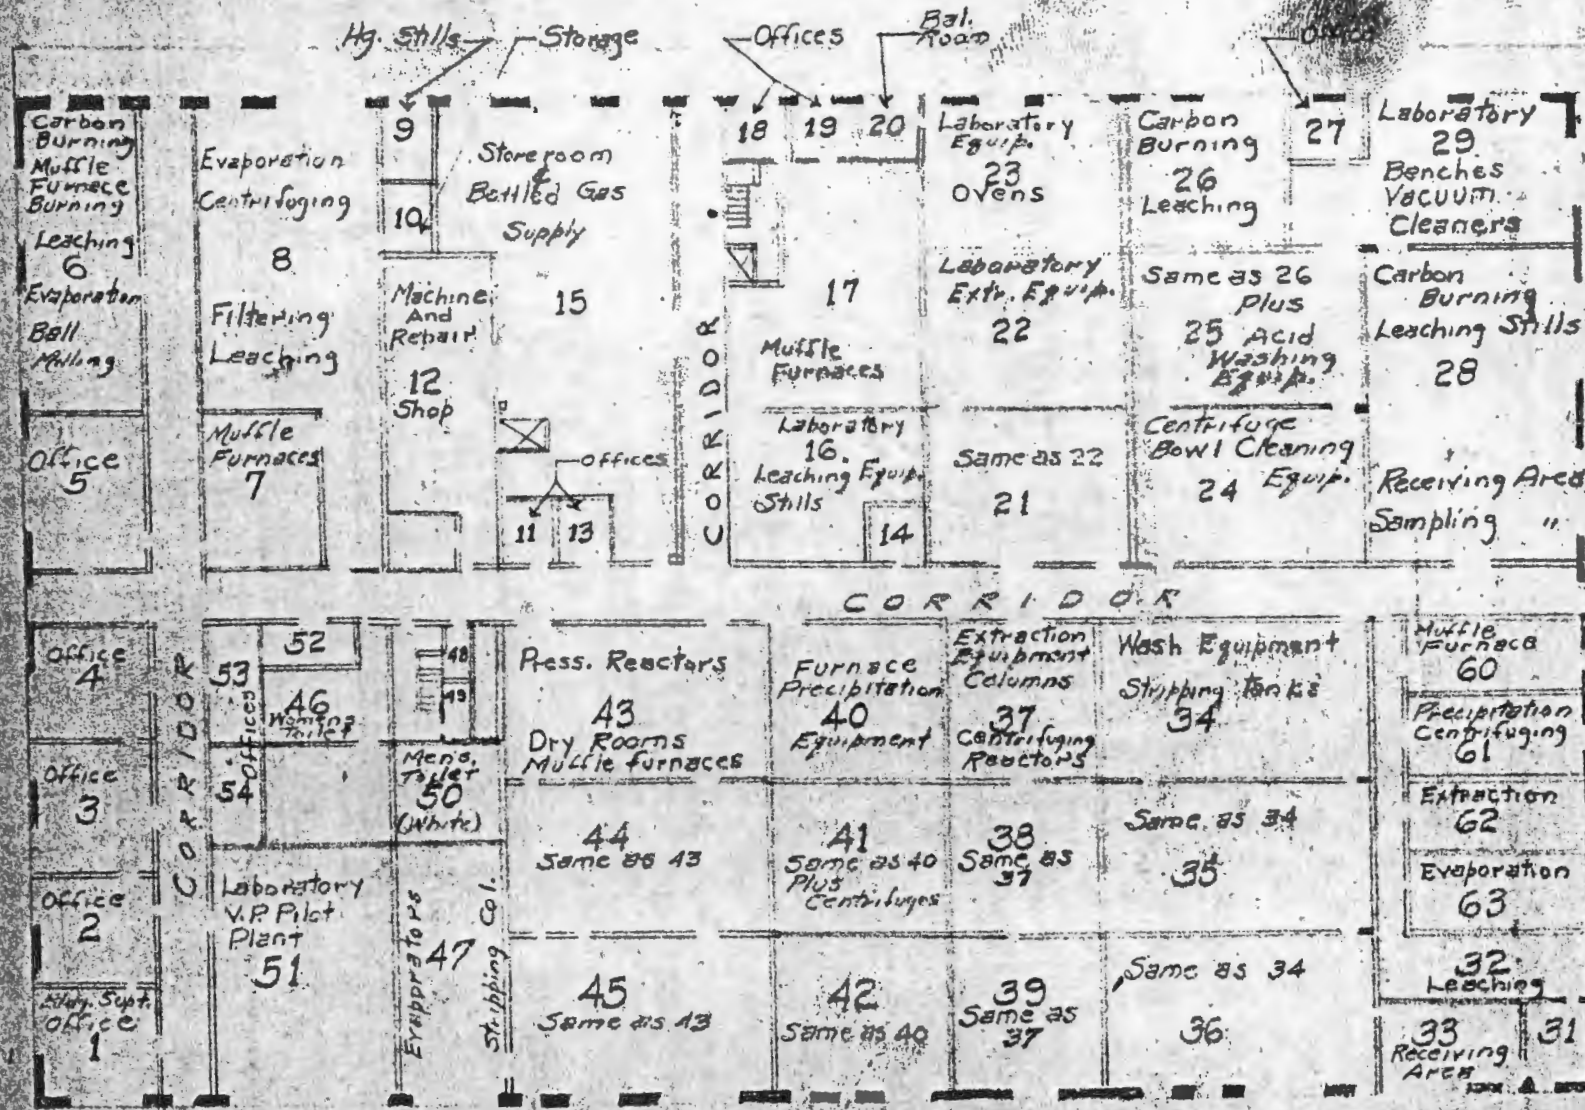 Hg. Stills
Storage
Offices
Bal.
Room
Office
Carbon
Burning
Muffle
Furnace
Burning
Leaching
6
Evaporation
Ball
Milling
Evaporation
Centrifuging
8
Filtering
Leaching
9
10
Storeroom
&
Bottled Gas
Supply
15
Machine
And
Repair
12
Shop
Offices
11
13
Office
5
Muffle
Furnaces
7
CORRIDOR
18
19
20
17
Muffle
Furnaces
Laboratory
16.
Leaching Equip.
Stills
14
Laboratory
Equip.
23
Ovens
Laboratory
Extr. Equip.
22
Same as 22
21
Carbon
Burning
26
Leaching
27
Same as 26
Plus
25 Acid
Washing
Equip.
Centrifuge
Bowl Cleaning
24 Equip.
Laboratory
29
Benches
Vacuum
Cleaners
Carbon
Burning
Leaching Stills
28
Receiving Area
Sampling "
CORRIDOR
Office
4
Office
3
Office
2
Bldg. Supt.
Office
1
CORRIDOR
52
53
Offices
54
46
Womens
Toilet
48
49
Mens
Toilet
50
(White)
Laboratory
V.P. Pilot
Plant
51
Evaporators
47
Stripping Col.
Press. Reactors
43
Dry Rooms
Muffle furnaces
44
Same as 43
45
Same as 43
Furnace
Precipitation
40
Equipment
41
Same as 40
Plus
Centrifuges
42
Same as 40
Extraction
Equipment
Columns
37
Centrifuging
Reactors
38
Same as
37
39
Same as
37
Wash Equipment
Stripping Tanks
34
Same as 34
35
Same as 34
36
Muffle
Furnace
60
Precipitation
Centrifuging
61
Extraction
62
Evaporation
63
32
Leaching
33
Receiving
Area
31